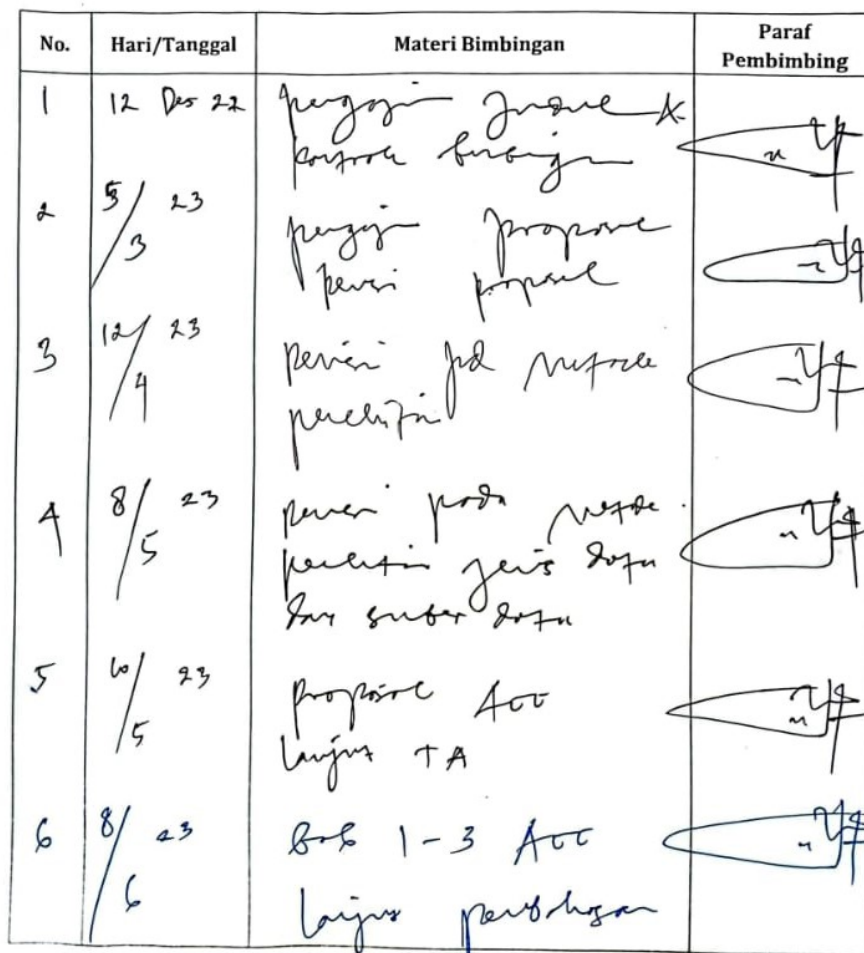 No. Hari/Tanggal Materi Bimbingan Paraf Pembimbing
1 12 Des 22 pengajuan Judul &
kontrak bimbingan
2 5/3 23 pengajuan proposal
revisi proposal
3 12/4 23 revisi pd metode
penelitian
4 8/5 23 revisi pada metode
penelitian jenis data
dan sumber data
5 10/5 23 Proposal ACC
lanjut TA
6 8/6 23 Bab 1-3 ACC
lanjut pembahasan